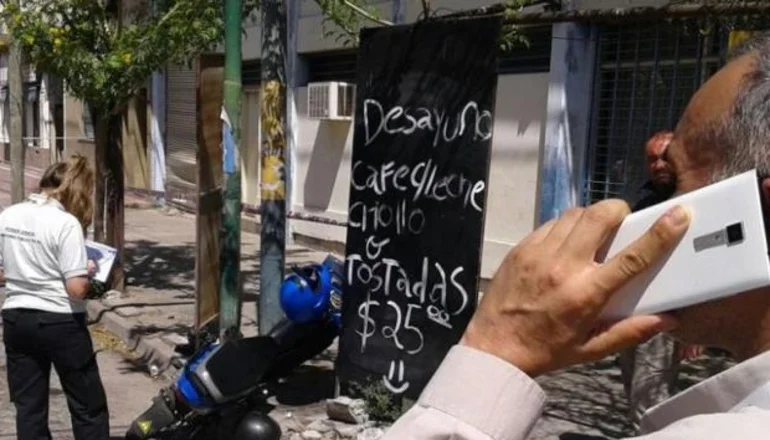 Desayuno
cafe c/leche
criollo
o
Tostadas
$25⁰⁰